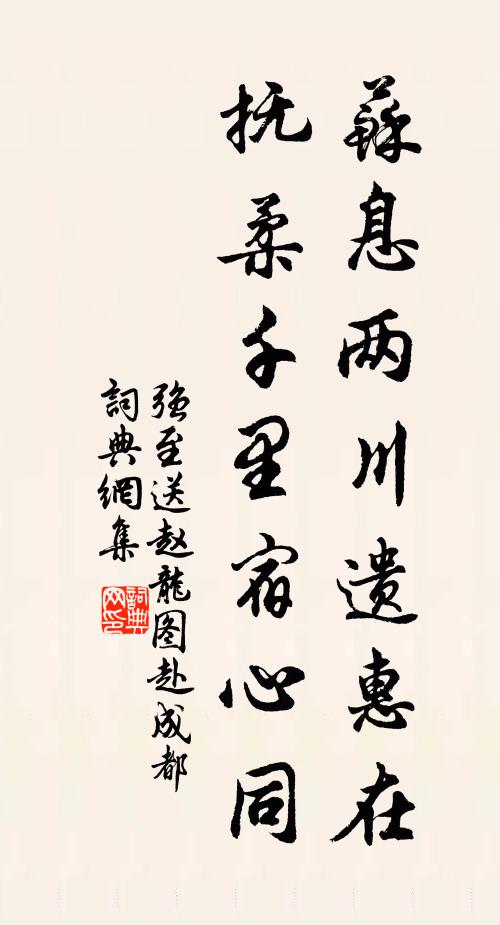 蘇息两川遗惠在
抚柔千里宿心同
强至送赵龍图赴成都
詞典網集
詞典网印